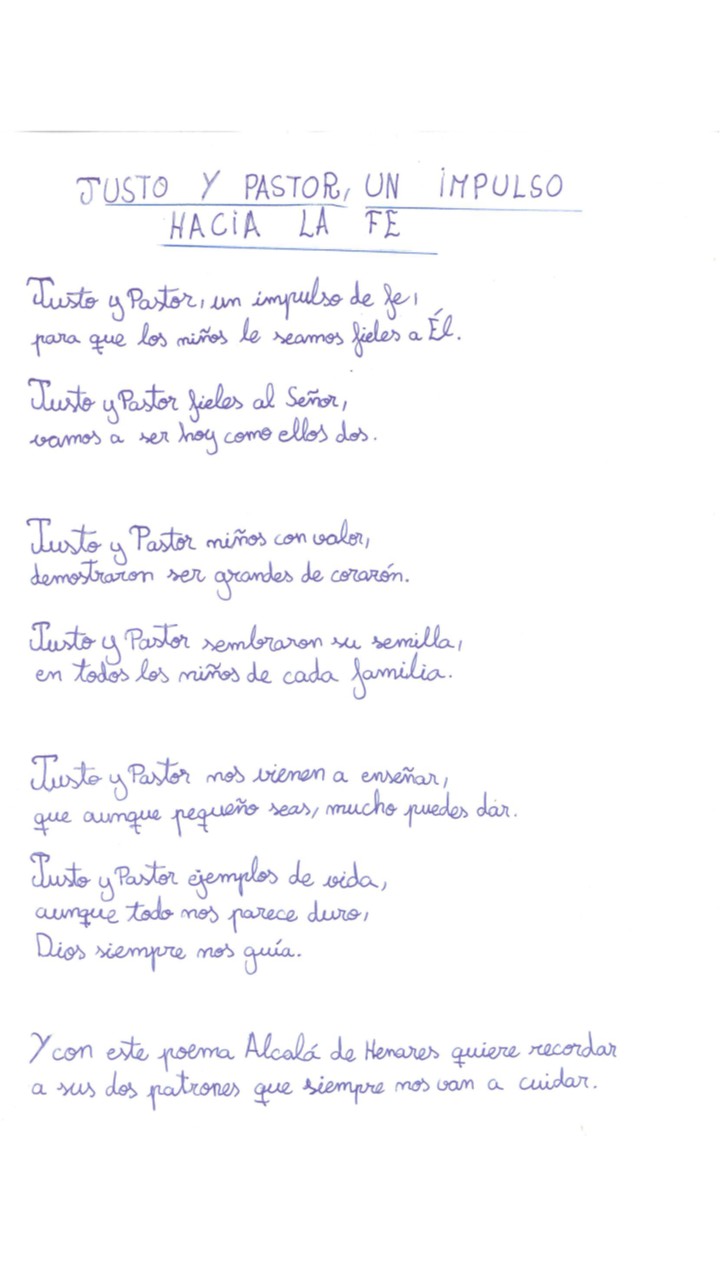 JUSTO Y PASTOR, UN IMPULSO
HACIA LA FE
Justo y Pastor, un impulso de fe,
para que los niños le seamos fieles a Él.
Justo y Pastor fieles al Señor,
vamos a ser hoy como ellos dos.
Justo y Pastor niños con valor,
demostraron ser grandes de corazón.
Justo y Pastor sembraron su semilla,
en todos los niños de cada familia.
Justo y Pastor nos vienen a enseñar,
que aunque pequeño seas, mucho puedes dar.
Justo y Pastor ejemplos de vida,
aunque todo nos parece duro,
Dios siempre nos guía.
Y con este poema Alcalá de Henares quiere recordar
a sus dos patrones que siempre nos van a cuidar.